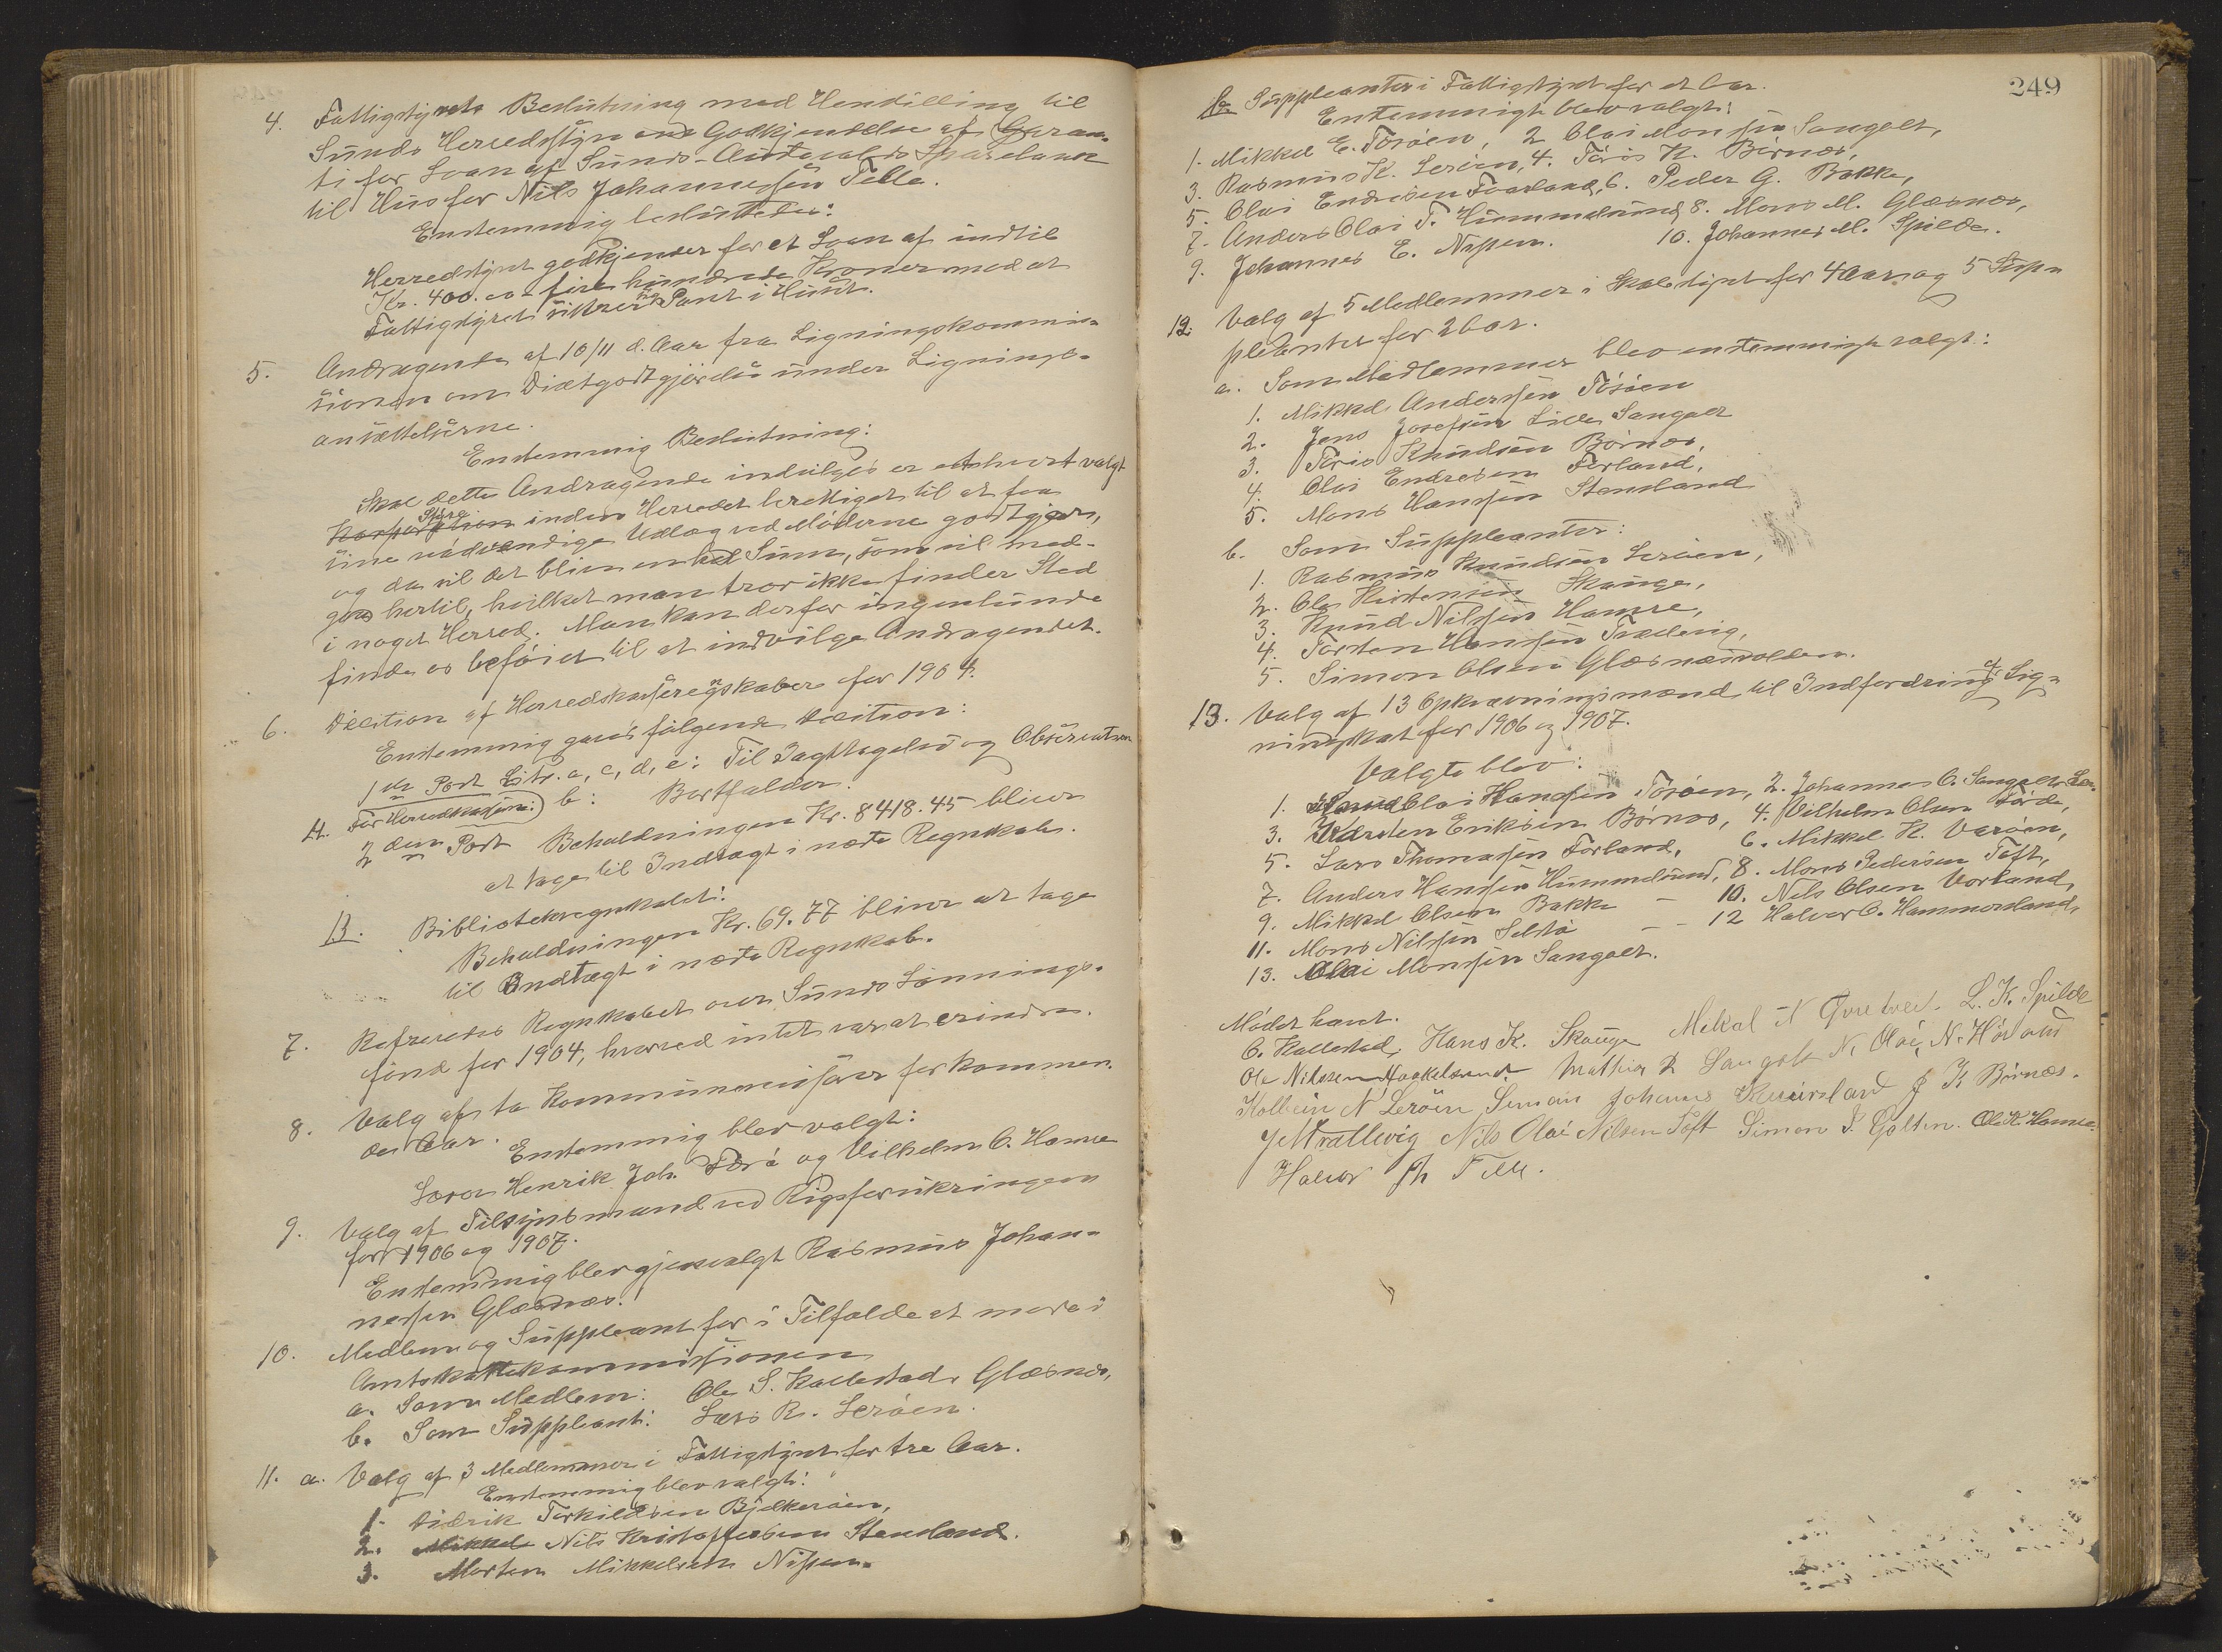 4. Fattigstyrets Beslutning med Henstilling til
Sunds Herredsstyre om Godkjendelse af Garan-
ti for Laan af Sunds-Austevolds Sparebank
til Hus for Nils Johannessen Telle.
Enstemmig besluttedes:
Herredstyret godkjender for et Laan af indtil
Kr. 400.00 - fire hundrede Kroner med at
Fattigstyret sikrer sig Pant i Huset.
5. Andragende af 10/11 d. Aar fra Ligningskommis-
sionen om Diætgodtgjørelse under Lignings-
ansættelserne.
Enstemmig Beslutning:
Skal dette Andragende indvilges er ethvert valgt
Styre
Korporation inden Herredet berettiget til at faa
sine nødvendige Udlæg ved Møderne godtgjort,
og da vil det blive en hel Sum, som vil med-
gaa hertil, hvilket man tror ikke finder Sted
i noget Herred. Man kan derfor ingenlunde
finde os beføiet til at indvilge Andragendet.
6. Decition af Herredskasseregnskabet for 1904.
Enstemmig gaves følgende Decition:
A. For Herredskassen: 1ste Post Litr. a, c, d, e: Til Iagttagelse og Observation
b: Bortfalder.
2den Post Beholdningen Kr. 8418.45 bliver
at tage til Indtægt i næste Regnskab.
B. Biblioteksregnskabet:
Beholdningen Kr. 69.77 bliver at tage
til Indtægt i næste Regnskab.
7. Refereredes Regnskabet over Sunds Lønnings-
fond for 1904, hvorved intet var at erindre.
8. Valg af to Kommunerevisorer for kommen-
de Aar. Enstemmig blev valgt:
Lærer Henrik Joh. Tøsø og Vilhelm O. Hamre
9. Valg af Tilsynsmand ved Rigsforsikringen
for 1906 og 1907.
Enstemmig blev gjenvalgt Rasmus Johan-
nessen Glæsnæs.
10. Medlem og Suppleant for i Tilfælde at møde i
Amtsskattekommissionen
a. Som Medlem: Ole S. Kallestad, Glæsnæs,
b. Som Suppleant: Lars R. Lerøen.
11. a. Valg af 3 Medlemmer i Fattigstyret for tre Aar.
Enstemmig blev valgt:
1. Didrik Torkildsen Bjelkerøen,
2. Mikkel Nils Kristoffersen Stensland.
3. Morten Mikkelsen Nipen.
249
b. Suppleanter i Fattigstyret for et Aar.
Enstemmigt blev valgt:
1. Mikkel E. Tøsøen, 2 Olai Monsen Sangolt,
3. Rasmus K. Lerøen, 4. Tøris K. Børnæs,
5. Olai Endresen Forland, 6. Peder G. Bakke,
7. Anders Olai T. Hummelsund, 8. Mons M. Glæsnæs,
9. Johannes E. Nipen. 10. Johannes M. Spilde.
12. Valg af 5 Medlemmer i Skolestyret for 4 Aar og 5 Sup-
pleanter for 2 Aar.
a. Som Medlemmer blev enstemmige valgt:
1. Mikkel Anderssen Tøsøen
2. Jens Josefsen Lille Sangolt
3. Tøris Knudsen Børnæs,
4. Olai Endresen Forland,
5. Mons Hanssen Stensland
b. Som Suppleanter:
1. Rasmus Knudsen Lerøen,
2. Ole Kristensen Skauge,
3. Knud Nilssen Hamre,
4. Torsten Hanssen Trælevig,
5. Simon Olsen Glæsnæsvolden.
13. Valg af 13 Opkrævningsmænd til Indfordring af Lig-
ningsskat for 1906 og 1907.
Valgte blev:
1. Olai Hanssen Tøsøen, 2. Johannes O. Sangolt,
3. Karsten Eriksen Børnæs, 4. Vilhelm Olsen Førde,
5. Lars Thomassen Forland, 6. Mikkel K. Værøen,
7. Anders Hanssen Hummelsund, 8. Mons Pedersen Toft,
9. Mikkel Olsen Bakke - 10. Nils Olsen Vorland,
11. Mons Nilssen Selstø - - 12 Halvor O. Hammersland,
13. Olai Monssen Sangolt.
Mødet hævet.
O. Kallestad. Hans K. Skauge Mikal N Tveitvei. L. K. Spilde
Ole Nilssen Hoekelsund Mathias D Sangolt N. Olai N. Høiland
Kolbein N Lerøen Simon Johannes J K Børnæs.
J M Trællevig Nils Olai Nilsen Toft Simon S. Golten. Ole K Hamre.
Halvor Th Telle.